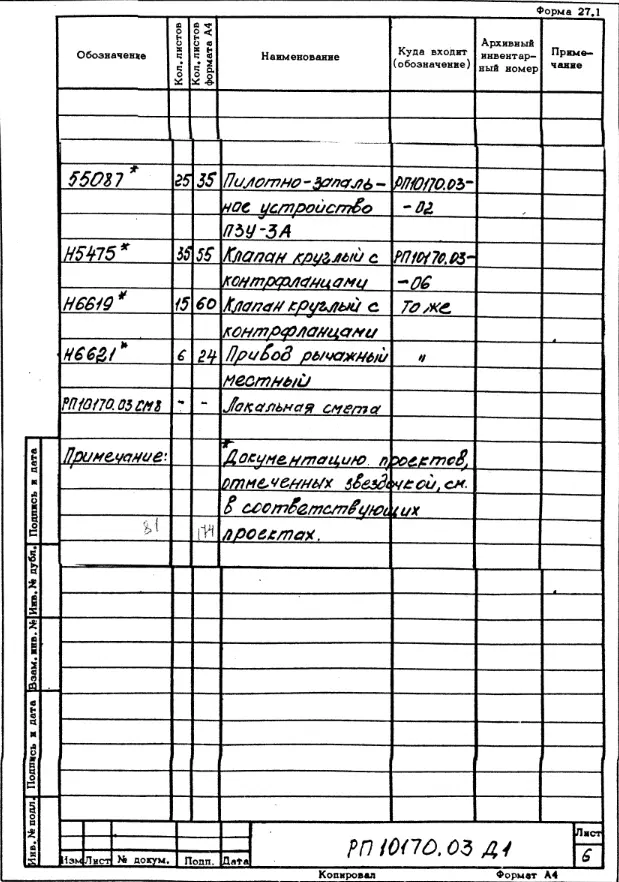 Форма 27.1
Обозначение Кол. листов Кол. листов формата А4 Наименование Куда входит (обозначение) Архивный инвентарный номер Примечание
55087* 25 35 Пилотно-запаль- РП10170.03-
ное устройство -02
ПЗУ-3А
Н5475* 35 55 Клапан круглый с РП10170.03-
контрфланцами -06
Н6619* 15 60 Клапан круглый с То же
контрфланцами
Н6621* 6 24 Привод рычажный "
местный
РП10170.03 СМ8 - - Локальная смета
Примечание: * Документацию проектов,
отмеченных звездочкой, см.
в соответствующих
31 174 проектах.
Подпись и дата
Инв. № дубл.
Взам. инв. №
Подпись и дата
Инв. № подл.
Изм Лист № докум. Подп. Дата
РП 10170.03 Д1
Лист
6
Копировал Формат А4